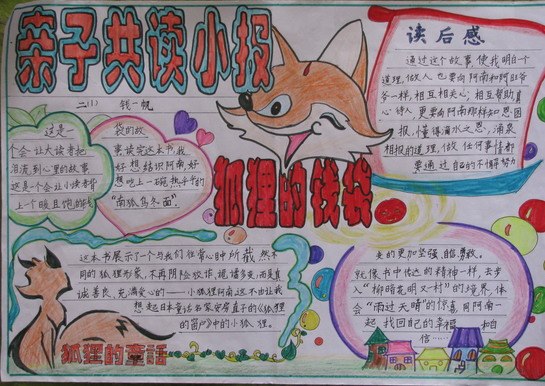 亲子共读小报
二(1) 钱一帆
读后感
通过这个故事使我明白了
道理,做人也要向阿南和阿旺爷
爷一样,相互相关心,相互帮助真
心待人,更要向阿南那样知恩回
报,懂得滴水之恩,涌泉
相报的道理,做任何事情都
要通过自己的不懈努力
这是一
个会让大读者把
泪流到心里的故事
这是一个会让小读者背
上个暖且饱的钱
袋的故
事,读完这本书,我
好想结识阿南,好
想吃上一碗热乎乎的
“南狐乌冬面”。
狐狸的钱袋
这本书展示了一个与我们往常心中所截然不
同的狐狸形象,不再阴险狡诈,诡谲多变,而是真
诚善良、充满爱心的——小狐狸阿南这不由让我
想起日本童话名家安房直子的《狐狸
的窗户》中的小狐狸。
狐狸的童话
变的更加坚强、自信、勇敢。
就像书中传达的精神一样,去步
入“柳暗花明又一村”的境界,体
会“雨过天晴”的惊喜,同阿南一
起找回自己的幸福和相
信……